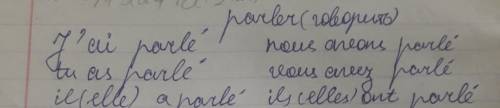 parler (говорить)
J'ai parlé nous avons parlé
tu as parlé vous avez parlé
il (elle) a parlé ils (elles) ont parlé